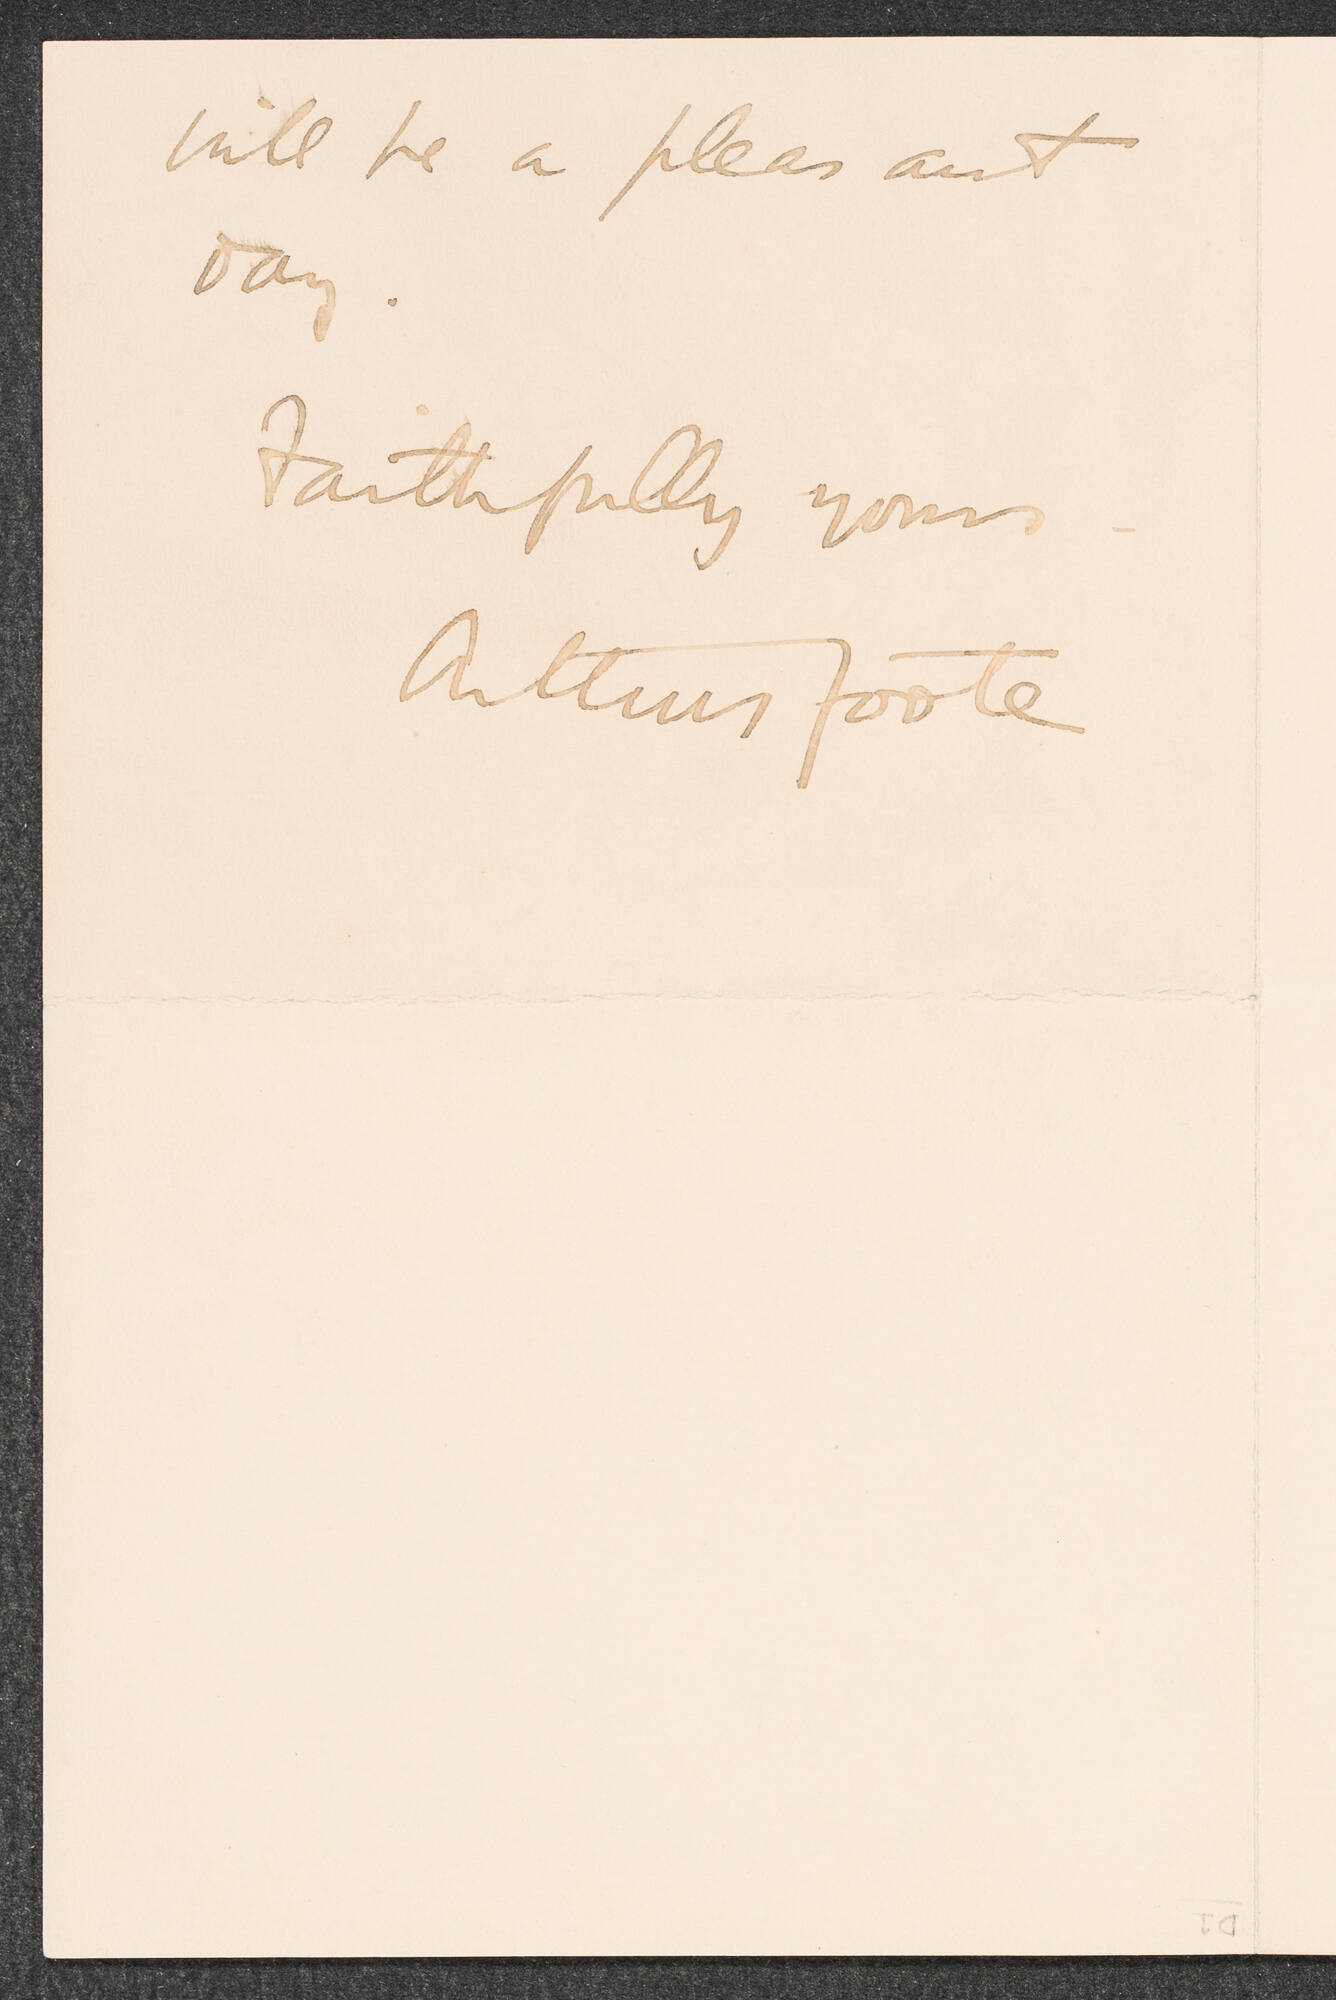 will be a pleasant
day.
Faithfully yours -
Arthur Foote